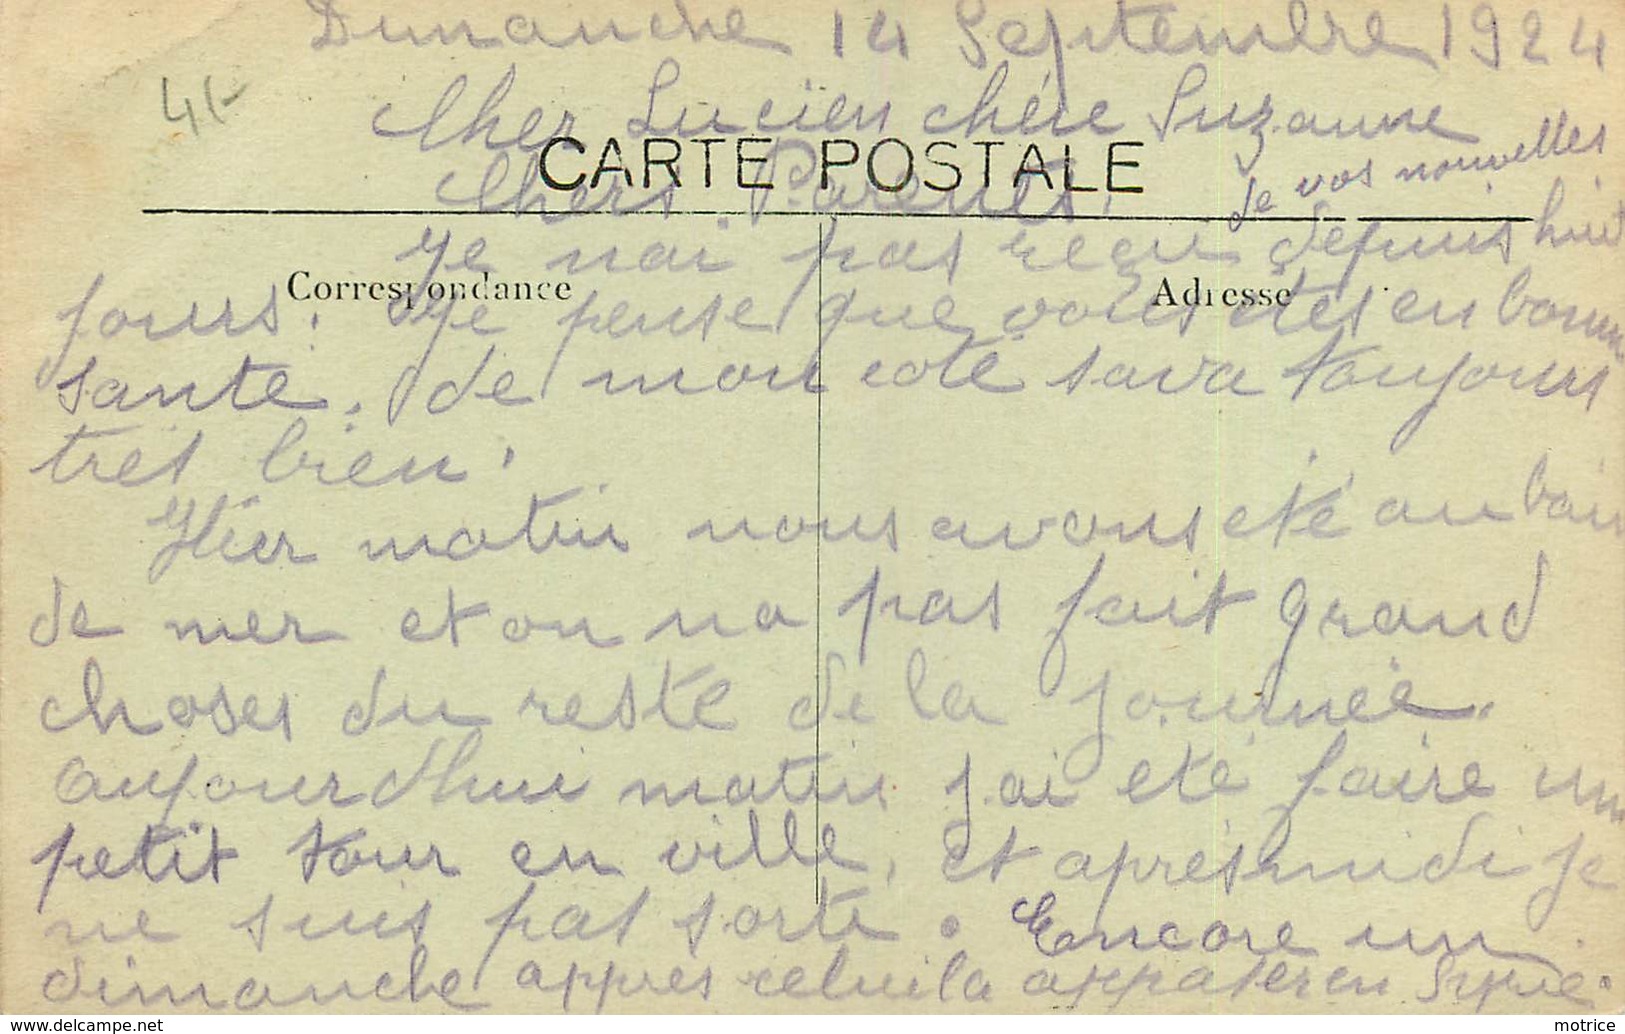 Dimanche 14 Septembre 1924
41-
Cher Lucien chère Suzanne
CARTE POSTALE
Chers Parents.
de vos nouvelles
Je nai pas reçu depuis huit
Correspondance
Adresse
jours. Je pense que vous êtes en bonne
sante. de mon coté sava toujours
tres bien.
Hier matin nous avons eté au bain
de mer et on na pas fait grand
choses du reste de la journée.
aujourdhui matin jai eté faire un
petit tour en ville, et aprésmidi je
ne suis pas sorti. Encore un
dimanche appres celui la a passer en Syrie.
www.delcampe.net
motrice